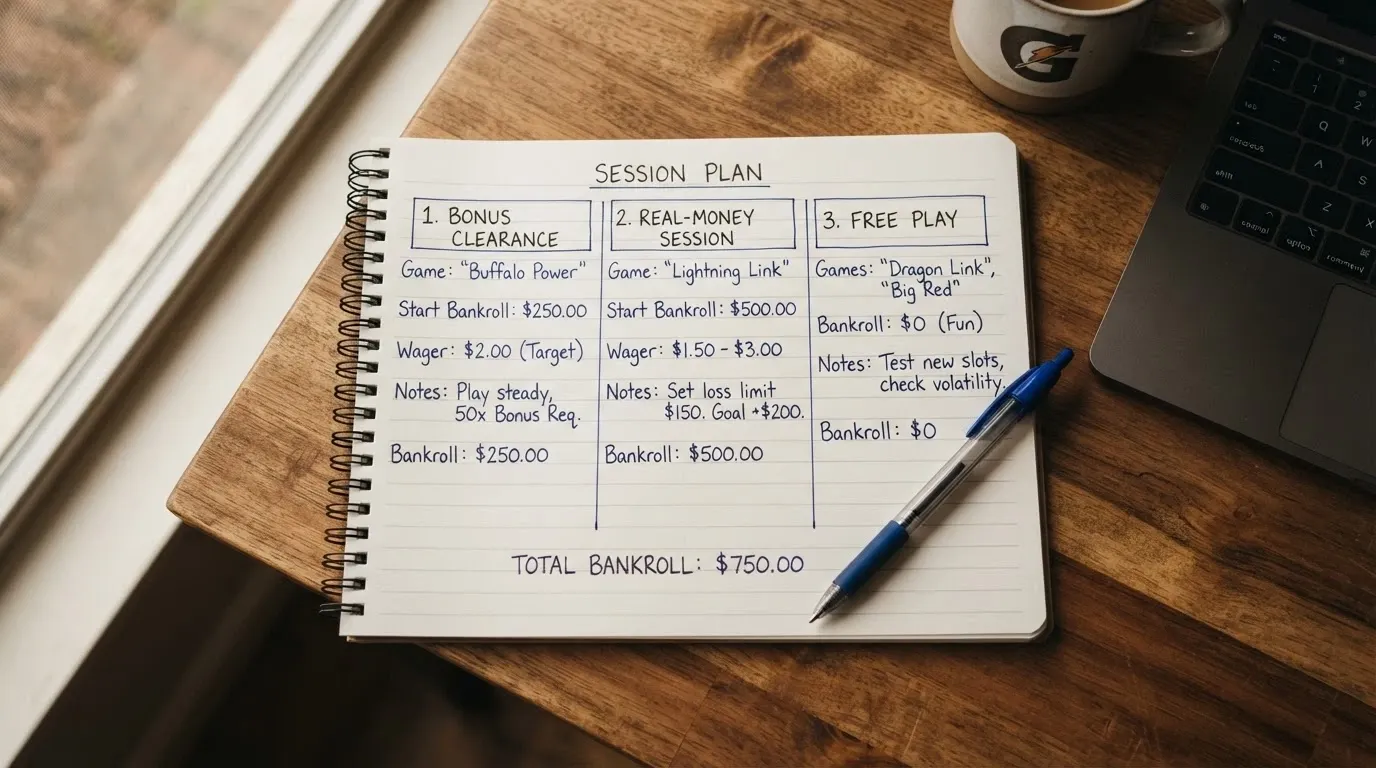 SESSION PLAN
1. BONUS
CLEARANCE
Game: "Buffalo Power"
Start Bankroll: $250.00
Wager: $2.00 (Target)
Notes: Play steady,
50x Bonus Req.
Bankroll: $250.00
2. REAL-MONEY
SESSION
Game: "Lightning Link"
Start Bankroll: $500.00
Wager: $1.50 - $3.00
Notes: Set loss limit
$150. Goal +$200.
Bankroll: $500.00
3. FREE PLAY
Games: "Dragon Link",
"Big Red"
Bankroll: $0 (Fun)
Notes: Test new slots,
check volatility.
Bankroll: $0
TOTAL BANKROLL: $750.00
G